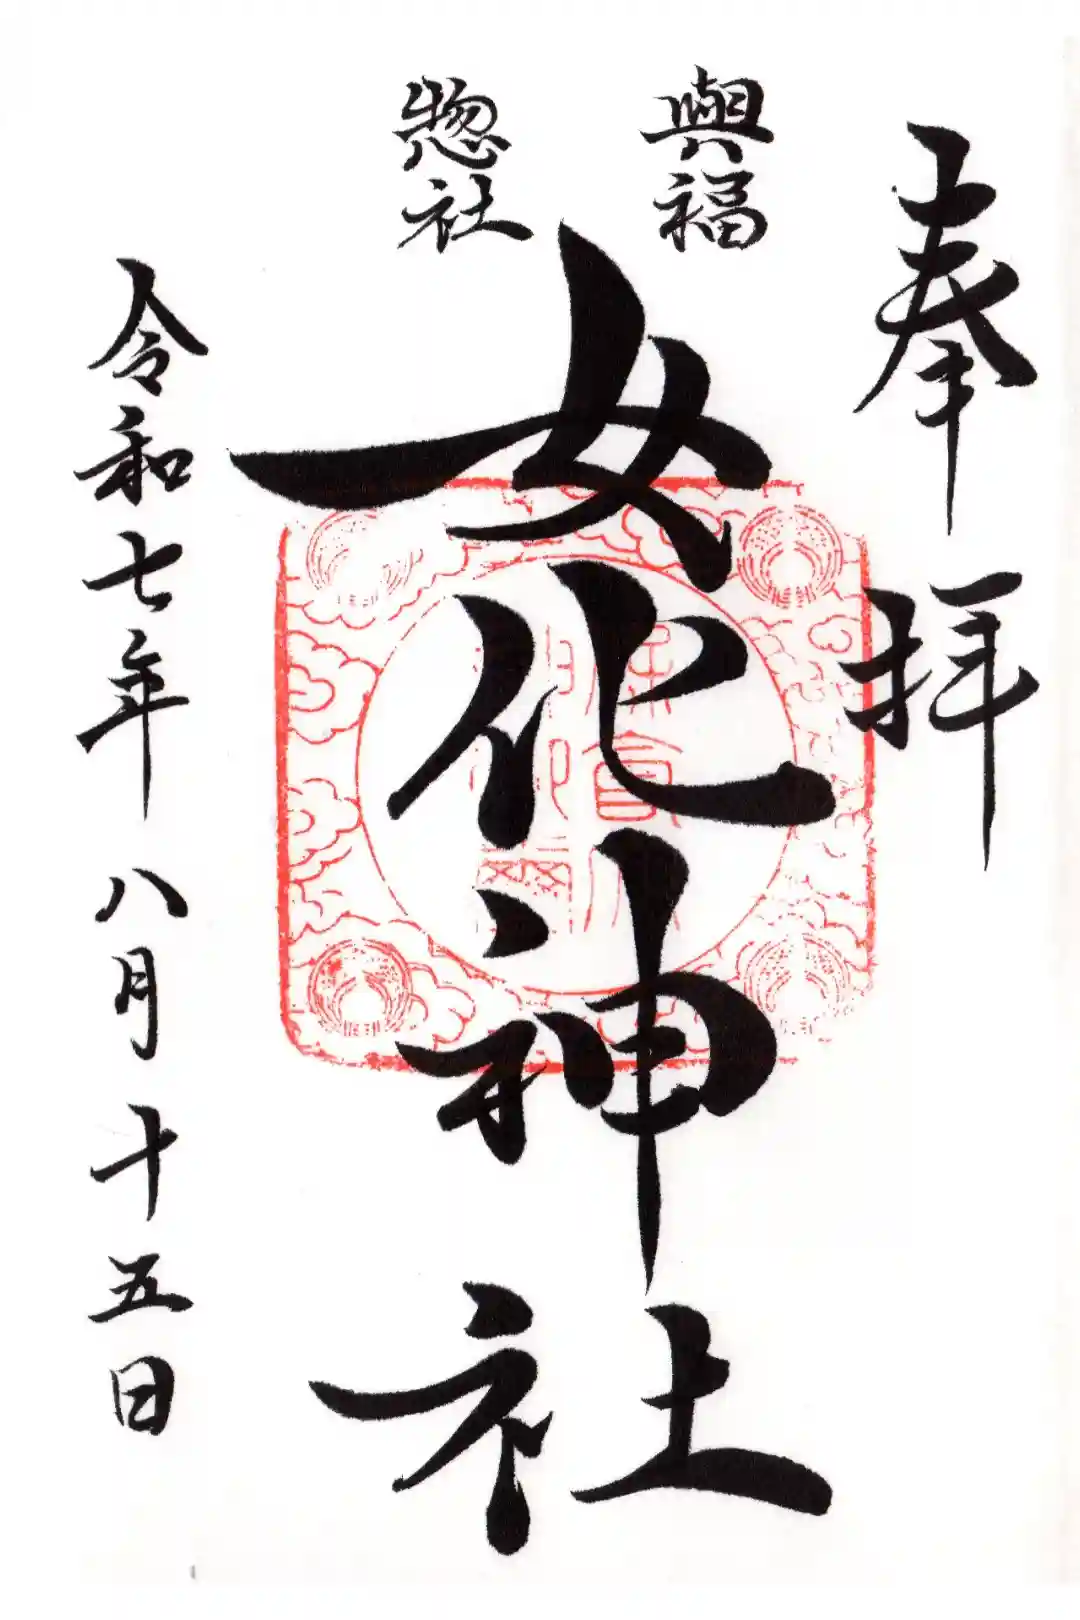 奉拝
興福
女化神社
惣社
令和七年 八月十五日